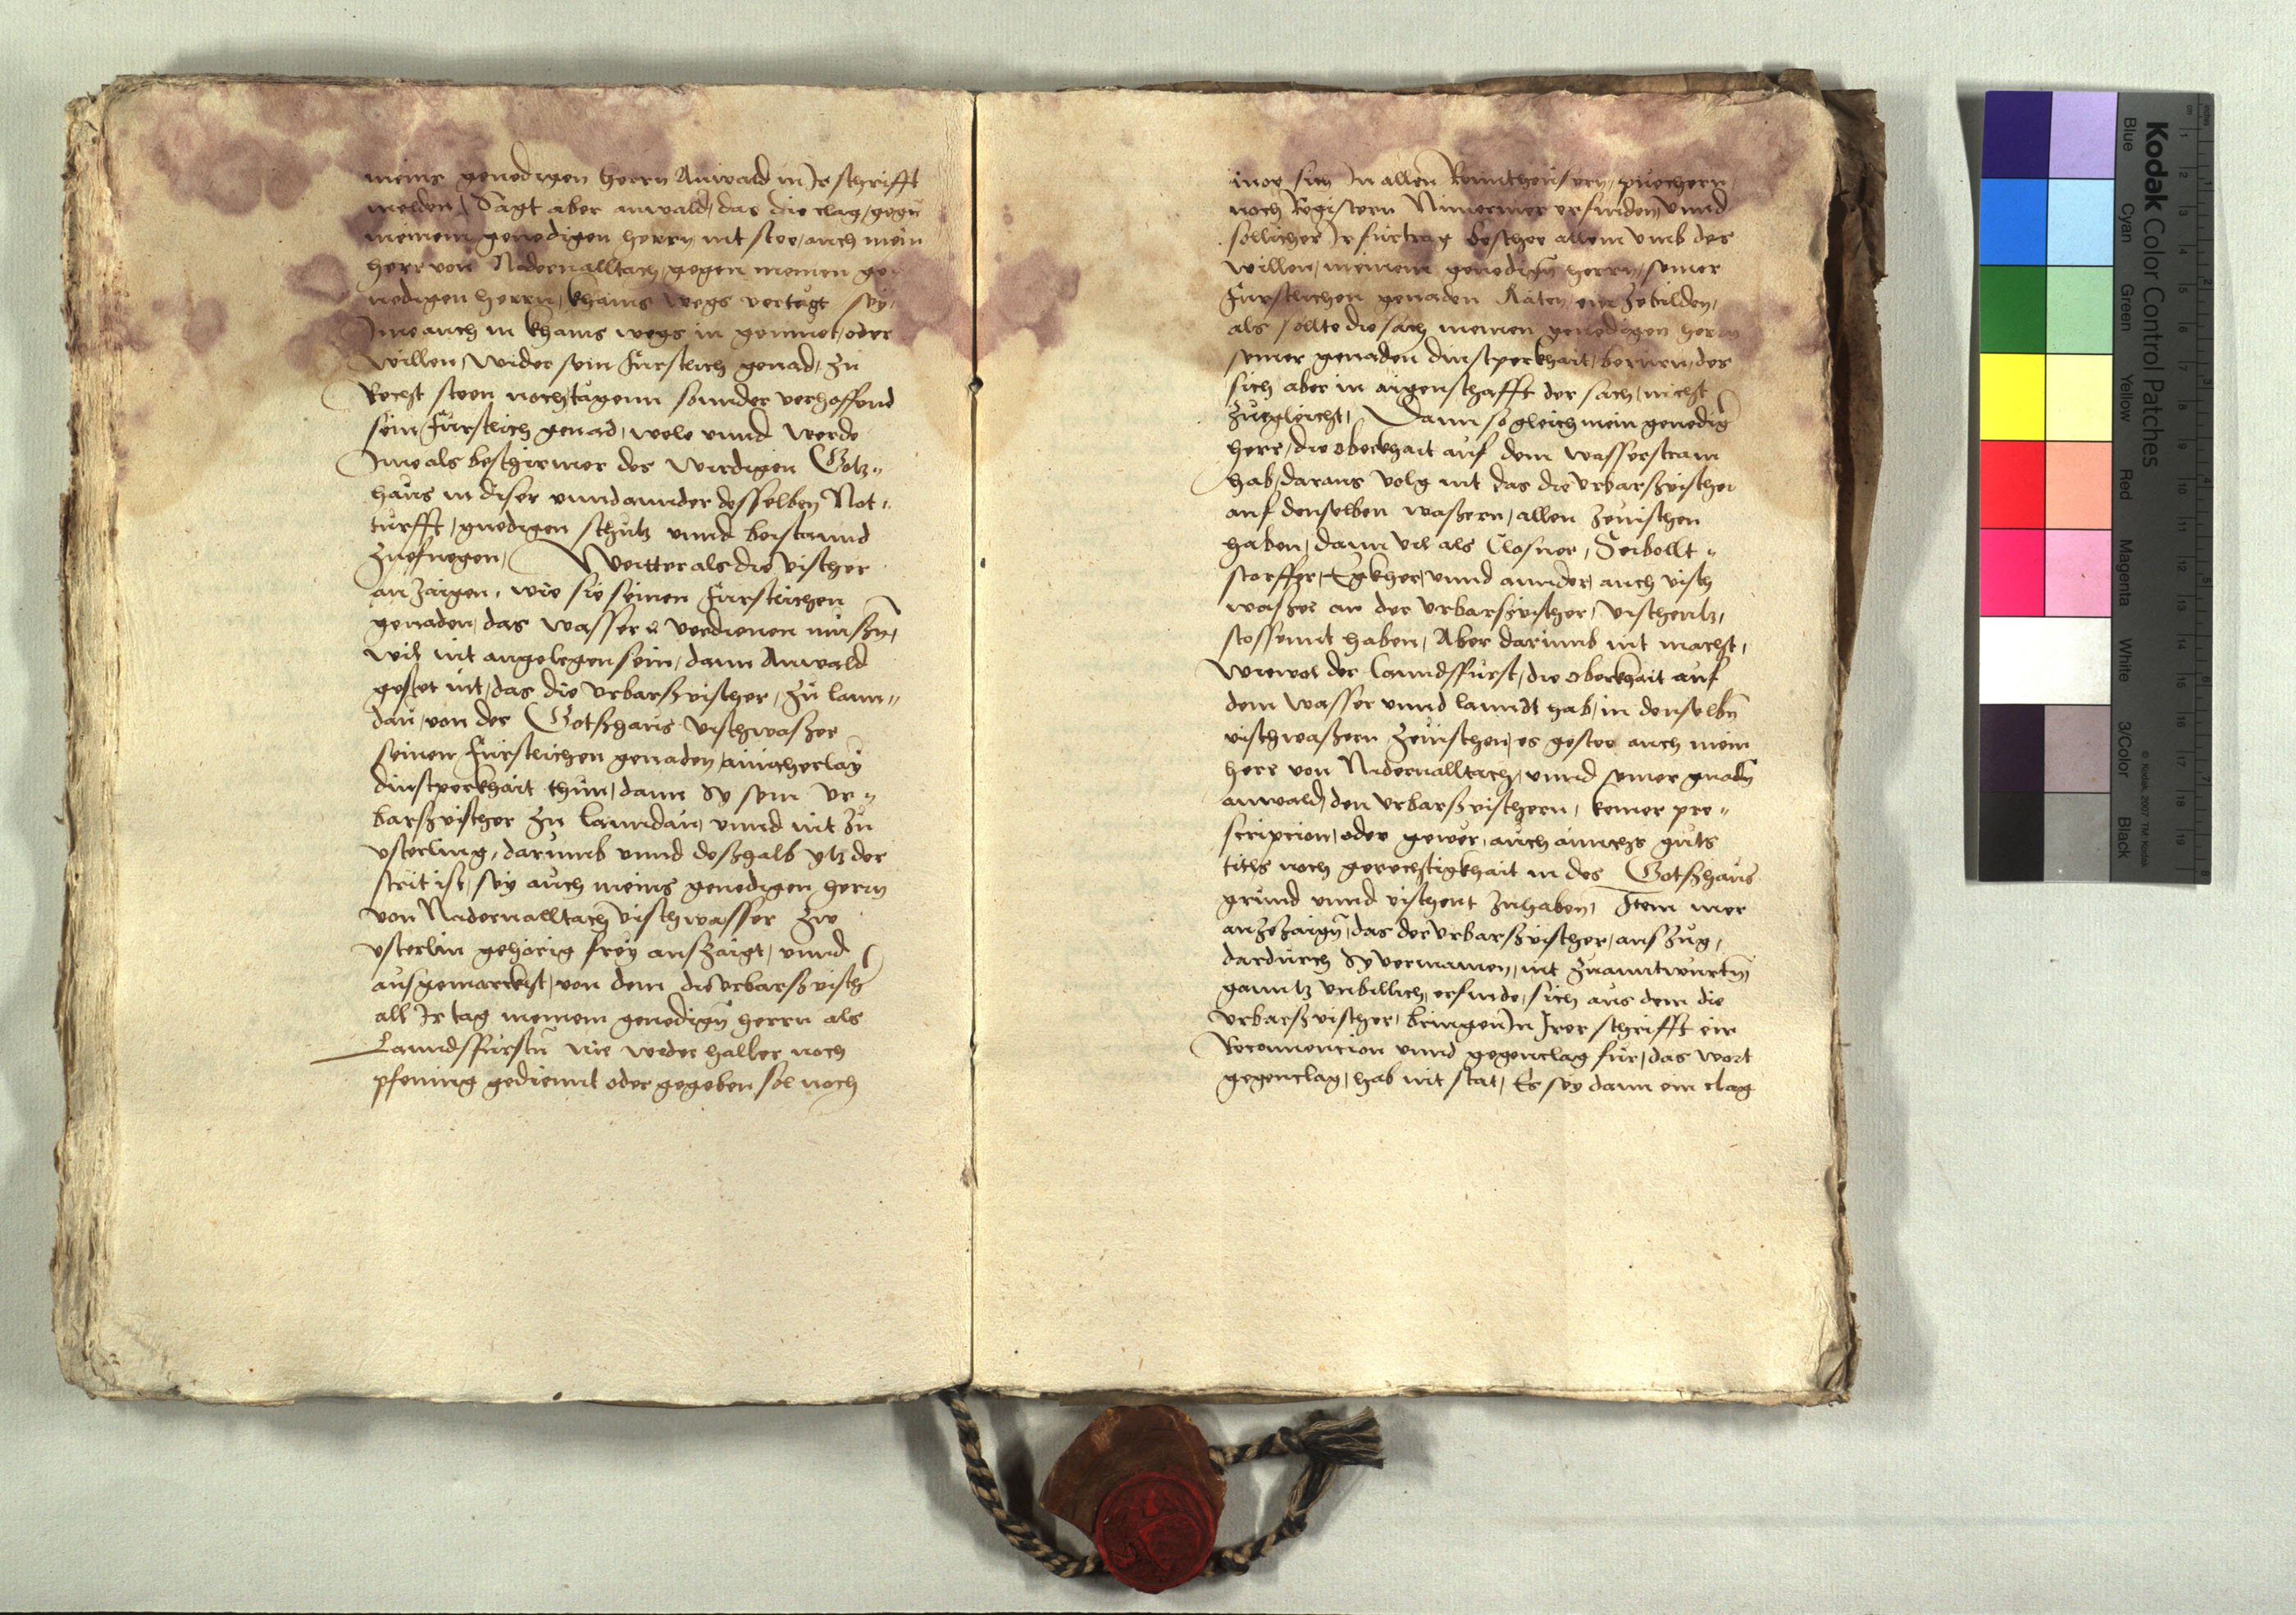 meins genedigen herrn Anwald in Jr schrifft
melden, Sagt aber anwald, das die clag, gegn
meinem genedigen herrn nit stee, auch mein
herr von Nidernalltach, gegen meinen ge
nedigen herrn, khains wegs vertagt sey,
Jme auch in khains wegs in gemuet, oder
willen, wider sein Fürstlich genad, zu
Recht steen noch tagenn sonnder verhoffend
sein Fürstlich genad, wele vnnd werde
Jme als beschirmer des wirdigen Gotz„
haus in diser vnnd annder desselben Not„
turfft, gnedigen schutz vnnd beistannd
zuefuegen, Weitter als die vischer
anzaigen, wie sie seinen Fürstlichen
genaden, das wasser verdienen müßn,
will nit angelegen sein, dann Anwald
gestet nit, das die vrbarßvischer, zu lann„
dau, von des Gotßhaus vischwaßer
seinen Fürstlichen genaden ainicherlay
dinstperkhait thun, dann Sy sein vr„
barßvischer zu Lanndau, vnnd nit zu
vsterling, darumb vnnd deßhalb ytz der
strit ist, sey auch meins genedigen herrn
von Nidernalltach vischwasser zw
vsterlin gehörig frey außzaigt, vnnd
ausgemarckht, von dem die vrbarßvisch
all Jr tag meinem genedign herrn als
Lanndßfürstn nie weder haller noch
pfening gediennt oder gegeben, sol noch
mer sich Jn allen Renntheusern, puechern,
noch Registern Nimermer erfinden vnnd
sollicher Jr fürtrag beschee allein vmb des
willen, meinem genedign herrn, seiner
Fürstlichen genaden Räten, ein zebilden,
als sollte die sach meinen genedigen herrn
seiner genaden dinstperkhait, berurn, des
sich aber in aigenschafft der sach, nicht
zuegleicht, Dann so gleich mein genedig
herr, die oberkhait auf dem wasserstram
hab, daraus volg nit das die vrbarßvischer
auf denselben waßern, allen zeuischen
haben, dann vil als Closner, Seibollt„
storffer, Egkher, vnnd annder, auch visch
waßer an der vrbarßvischer, vischentz,
stossennt haben, Aber darumb nit macht,
wiewol der Lanndßfürst, die oberkhait auf
dem wasser vnnd lanndt hab, in denselbn
vischwaßern zeuischen, es gestee auch mein
herr von Nidernalltach, vnnd seiner gnadn
anwald, den vrbarßvischern, keiner pre„
scripcion, oder gewer, auch ainichs guts
titls noch gerechtigkhait in des Gotßhaus
grund vnnd vischent zuhaben, Item mer
anzezaign, das der vrbarßvischer, außzug,
dardurch Sy vermainen, nit zuanntwurtn
ganntz vnbillich, erfinde, sich aus dem die
vrbarßvischer, bringen Jn Jrer schrifft ein
Reconuencion vnnd gegenclag für, das wort
gegenclag, hab nit stat, Es sey dann ein clag
Kodak Color Control Patches
Blue
Cyan
Green
Yellow
Red
Magenta
White
3/Color
Black
© Kodak, 2007 TM: Kodak